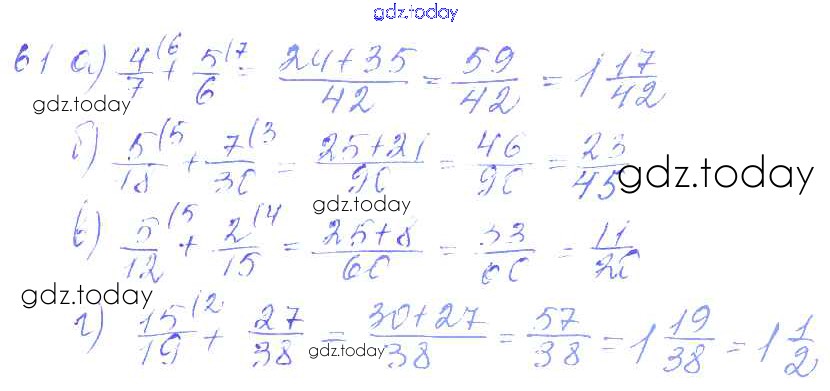 gdz.today
61 а) 4/7 (6 + 5/6 (7 = 24+35/42 = 59/42 = 1 17/42
gdz.today
б) 5/18 (5 + 7/30 (3 = 25+21/90 = 46/90 = 23/45
gdz.today
gdz.today
в) 5/12 (5 + 2/15 (4 = 25+8/60 = 33/60 = 11/20
gdz.today
г) 15/19 (2 + 27/38 = 30+27/38 = 57/38 = 1 19/38 = 1 1/2
gdz.today